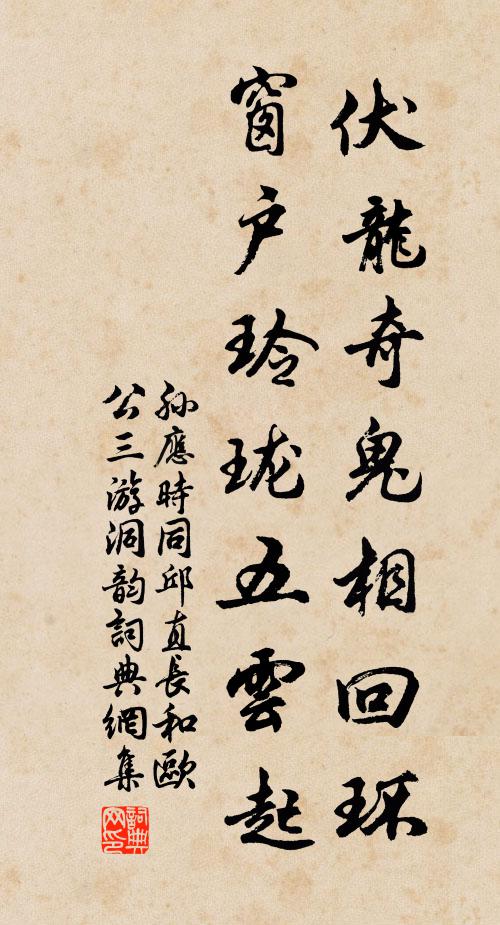 伏龍奇鬼相回环
窗户玲珑五雲起
孙應時同邱直長和歐
公三游洞韵詞典網集
詞典网印